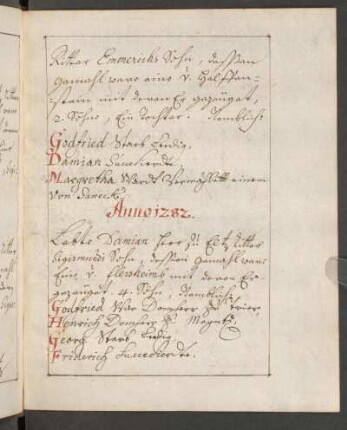 Ritter Emmerichs Sohn, dessen
gemahl ware eine v. Helffen-
stein mit deren Er gezeüget,
2. Söhne, Ein Tochter. Nemblich:
Godfried Starb Ledig.
Damian Succedierte.
Margretha Wardt Vermählett einem
von
Anno 1282.
Lebte Damian Herr zu Eltz Ritter
Sohn, dessen gemahl ware
Eine v. mit deren Er
gezeüget. 4. Söhn, Nemblich:
Godfried War Domherr zu Trier,
Henrich Domherr zu Maÿntz,
Georg Starb Ledig.
Friderich Succedierte.